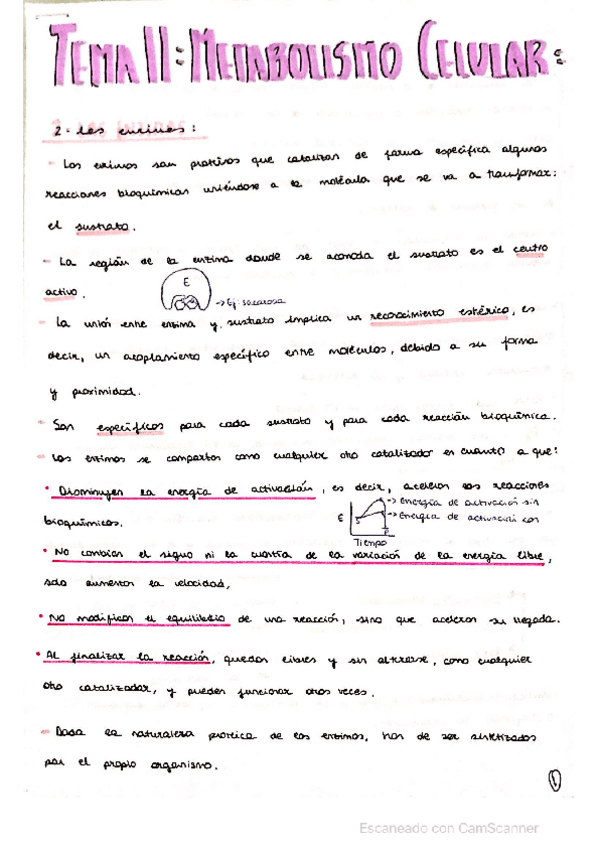 TEMA 11: METABOLISMO CELULAR:
2- Las enzimas:
- Las enzimas son proteínas que catalizan de forma específica algunas
reacciones bioquímicas uniéndose a la molécula que se va a transformar:
el sustrato.
- La región de la enzima donde se acomoda el sustrato es el centro
activo.
E
→ Ej: sacarosa
- La unión entre enzima y sustrato implica un reconocimiento estérico, es
decir, un acoplamiento específico entre moléculas, debido a su forma
y proximidad.
- Son específicas para cada sustrato y para cada reacción bioquímica.
- Las enzimas se comportan como cualquier otro catalizador en cuanto a que:
• Disminuyen la energía de activación, es decir, aceleran las reacciones
bioquímicas.
→ Energía de activación sin
→ Energía de activación con
E
S
P
Tiempo
• No cambian el signo ni la cuantía de la variación de la energía libre,
solo aumentan la velocidad,
• No modifican el equilibrio de una reacción, sino que aceleran su llegada.
• Al finalizar la reacción, quedan libres y sin alterarse, como cualquier
otro catalizador, y pueden funcionar otras veces.
- Dada la naturaleza proteica de las enzimas, han de ser sintetizadas
por el propio organismo.
1
Escaneado con CamScanner